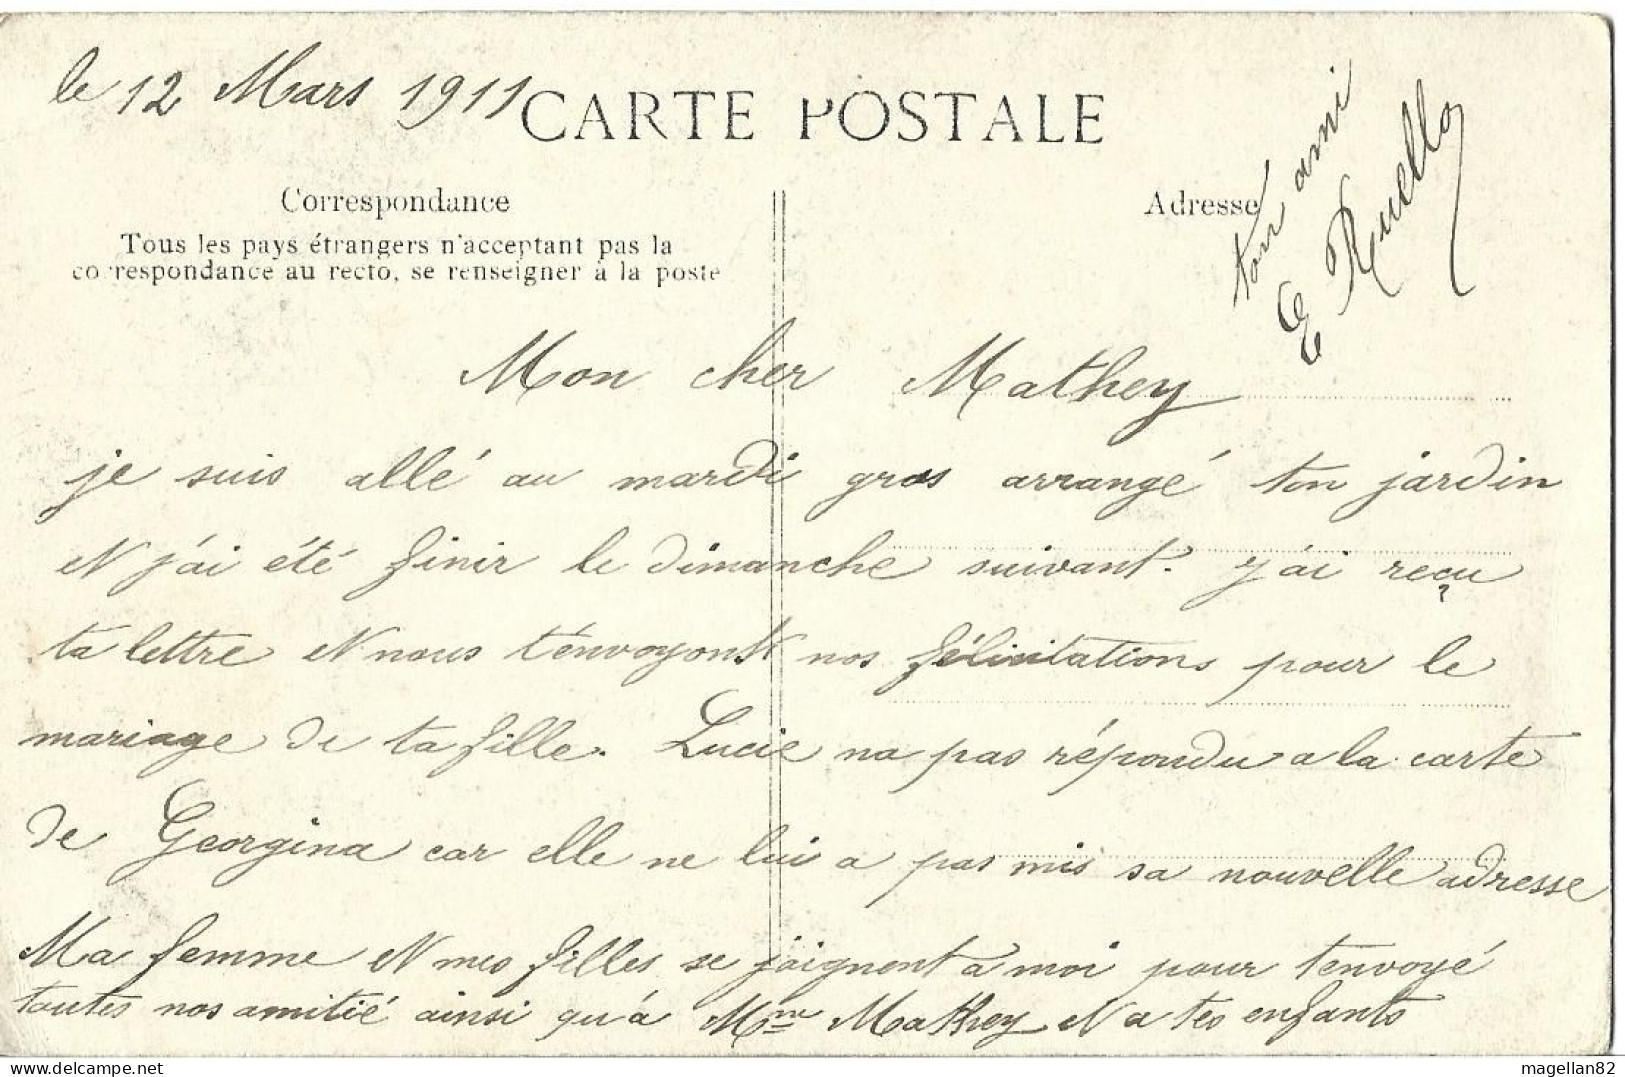 le 12 Mars 1911
CARTE POSTALE
Correspondance
Tous les pays étrangers n'acceptant pas la
correspondance au recto, se renseigner à la poste
Adresse
Mon cher Mathey
je suis allé au mardi gras arrangé ton jardin
et j'ai été finir le dimanche suivant. j'ai reçu
ta lettre et nous t'envoyons nos félicitations pour le
mariage de ta fille. Lucie na pas répondu a la carte
de Georgina car elle ne lui a pas mis sa nouvelle adresse
Ma femme et mes filles se joignent a moi pour t'envoyé
toutes nos amitié ainsi qu'à Mme Mathey et a tes enfants
ton ami
E Ruello
magellan82